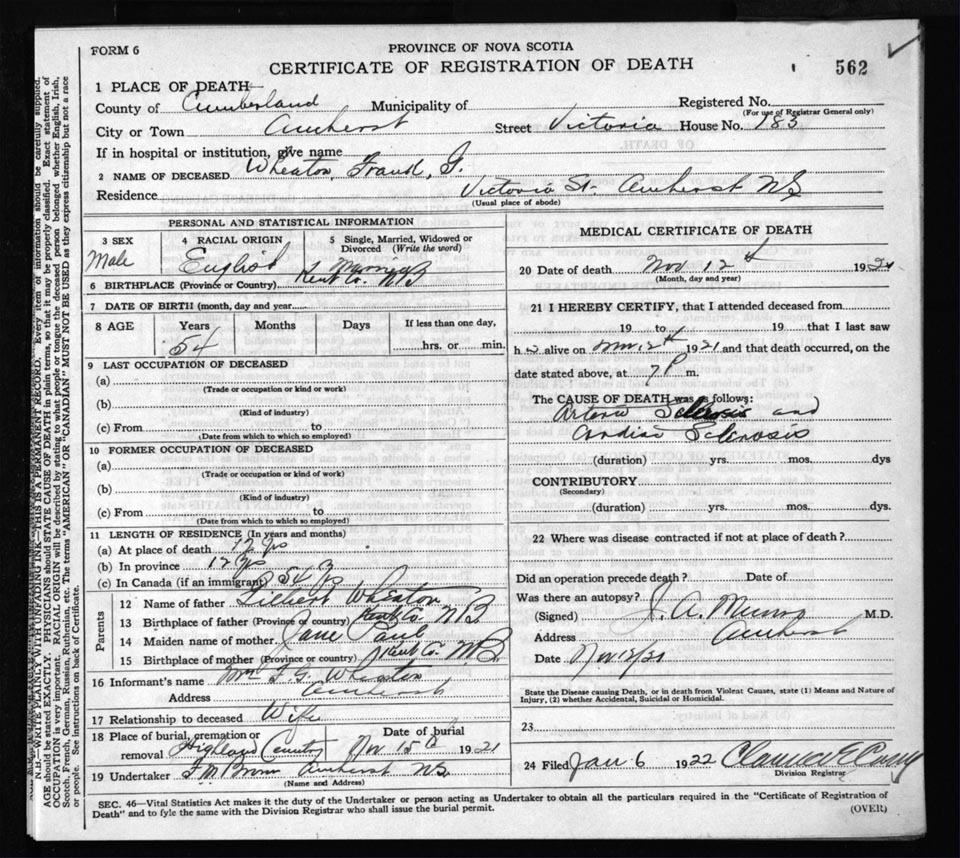 FORM 6
PROVINCE OF NOVA SCOTIA
CERTIFICATE OF REGISTRATION OF DEATH
562
1 PLACE OF DEATH
County of Cumberland Municipality of Registered No.
(For use of Registrar General only)
City or Town Amherst Street Victoria House No. 183
If in hospital or institution, give name
2 NAME OF DECEASED Wheaton, G.
Residence Victoria St. Amherst N.S.
(Usual place of abode)
PERSONAL AND STATISTICAL INFORMATION
3 SEX
Male
4 RACIAL ORIGIN
English
5 Single, Married, Widowed or Divorced (Write the word)
Married
6 BIRTHPLACE (Province or Country) Kent Co. N.B.
7 DATE OF BIRTH (month, day and year)
8 AGE Years Months Days If less than one day,
54 hrs. or min.
9 LAST OCCUPATION OF DECEASED
(a)
(Trade or occupation or kind or work)
(b)
(Kind of industry)
(c) From to
(Date from which to which so employed)
10 FORMER OCCUPATION OF DECEASED
(a)
(Trade or occupation or kind of work)
(b)
(Kind of industry)
(c) From to
(Date from which to which so employed)
11 LENGTH OF RESIDENCE (In years and months)
(a) At place of death 12 yrs
(b) In province 12 yrs
(c) In Canada (if an immigrant) 54 yrs
Parents
12 Name of father Wheaton
13 Birthplace of father (Province or country) Kent Co. N.B.
14 Maiden name of mother Jane
15 Birthplace of mother (Province or country) Kent Co. N.B.
16 Informant's name Mrs F. G. Wheaton
Address Amherst
17 Relationship to deceased Wife
18 Place of burial, cremation or removal Date of burial
Highland Cemetery Nov 15th 1921
19 Undertaker F. M. Brown Amherst N.S.
(Name and Address)
MEDICAL CERTIFICATE OF DEATH
20 Date of death Nov 12th 19
(Month, day and year)
21 I HEREBY CERTIFY, that I attended deceased from
19 to 19 that I last saw
h alive on Nov 12th 1921 and that death occurred, on the
date stated above, at 7 P m.
The CAUSE OF DEATH was as follows:
Arterio Sclerosis and
Cardiac Sclerosis
(duration) yrs. mos. dys
CONTRIBUTORY
(Secondary)
(duration) yrs. mos. dys.
22 Where was disease contracted if not at place of death?
Did an operation precede death? Date of
Was there an autopsy?
(Signed) J. A. Munro M.D.
Address Amherst
Date Nov 12/21
State the Disease causing Death, or in death from Violent Causes, state (1) Means and Nature of
Injury, (2) whether Accidental, Suicidal or Homicidal.
23
24 Filed Jan 6 1922
Division Registrar
SEC. 46—Vital Statistics Act makes it the duty of the Undertaker or person acting as Undertaker to obtain all the particulars required in the "Certificate of Registration of
Death" and to fyle the same with the Division Registrar who shall issue the burial permit. (OVER)
N.B.—WRITE PLAINLY WITH UNFADING INK—THIS IS A PERMANENT RECORD. Every item of information should be carefully supplied.
AGE should be stated EXACTLY. PHYSICIANS should STATE CAUSE OF DEATH in plain terms, so that it may be properly classified. Exact statement of
OCCUPATION is very important. RACIAL ORIGIN will be described by stating to what people or tongue the deceased person belonged whether English, Irish,
Scotch, French, German, Russian, Ruthenian, etc. The terms "AMERICAN" OR "CANADIAN" MUST NOT BE USED as they express citizenship but not a race
or people. See instructions on back of Certificate.